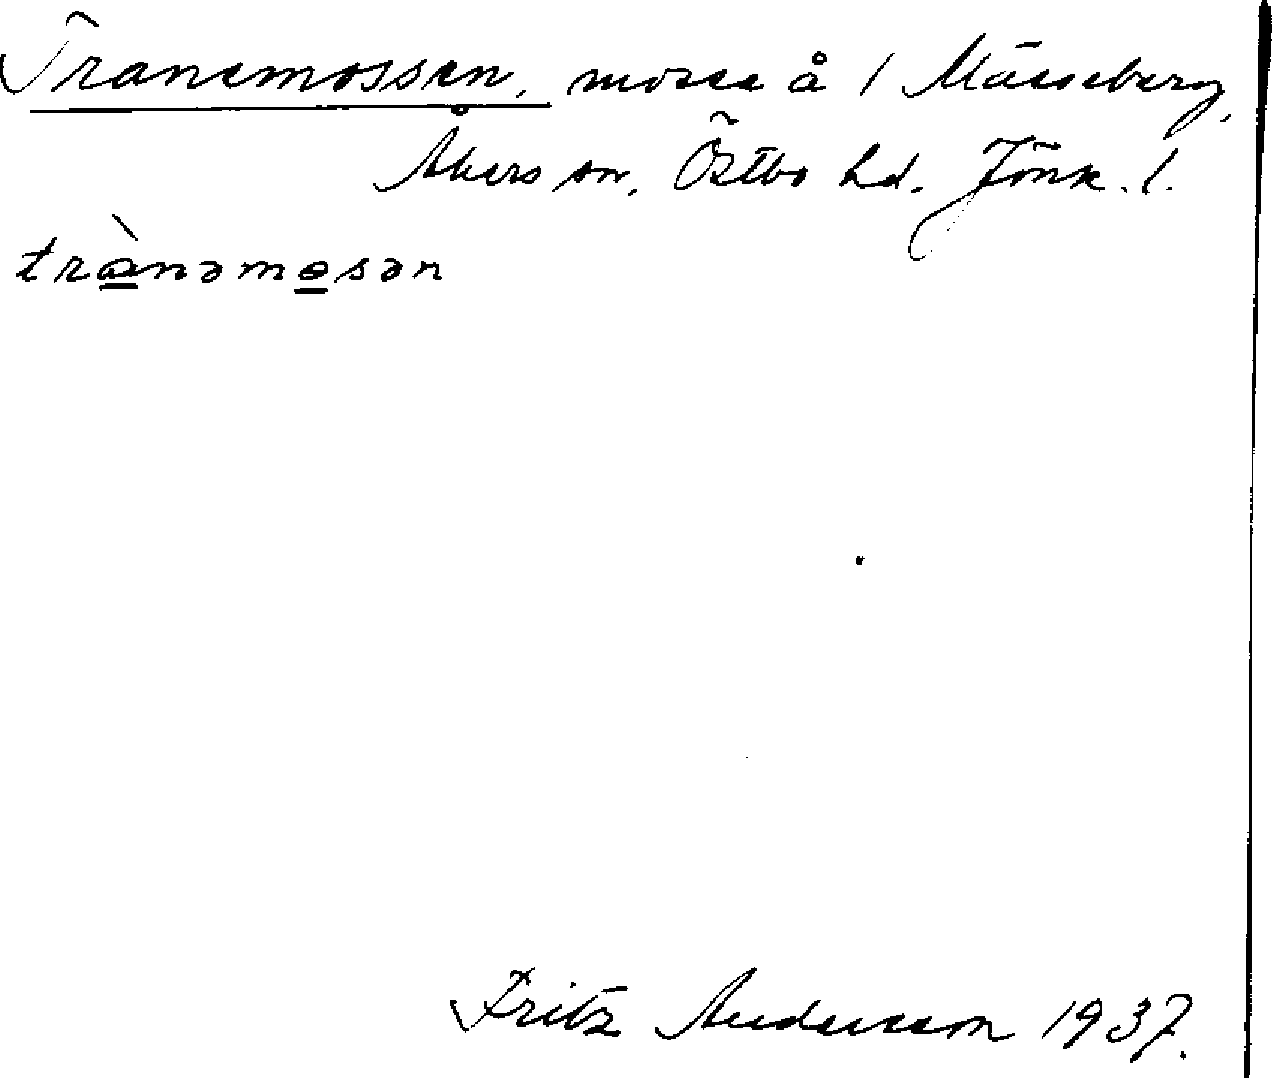 Tranemossen, mosse å 1 Mässeberg,
Åkers sn, Östbo hd. Jönk. l.
trànəmosən
Fritz Andersson 1937.